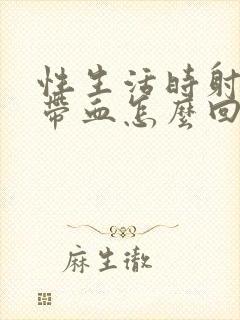 性生活時射
帶血怎麼回
麻生徹